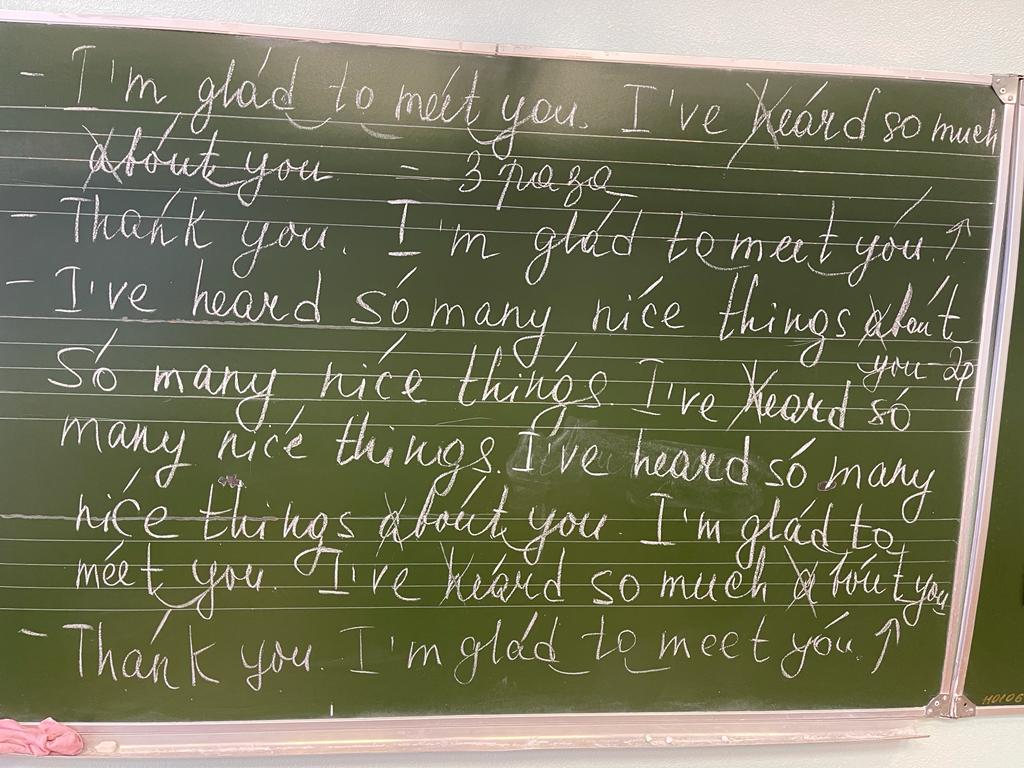 - I'm glád to méet you. I've heárd so much
abóut you = 3 раза
- Thánk you. I'm glád to meet yóu. ↑
- I've heard só many níce things abóut
you - 2р
Só mány níce thíngs. I've heard só
many níce things. I've heard só many
níce things abóut you. I'm glád to
méet you. I've heárd so much abóut you
- Thánk you. I'm glád to meet yóu. ↑
Н0106